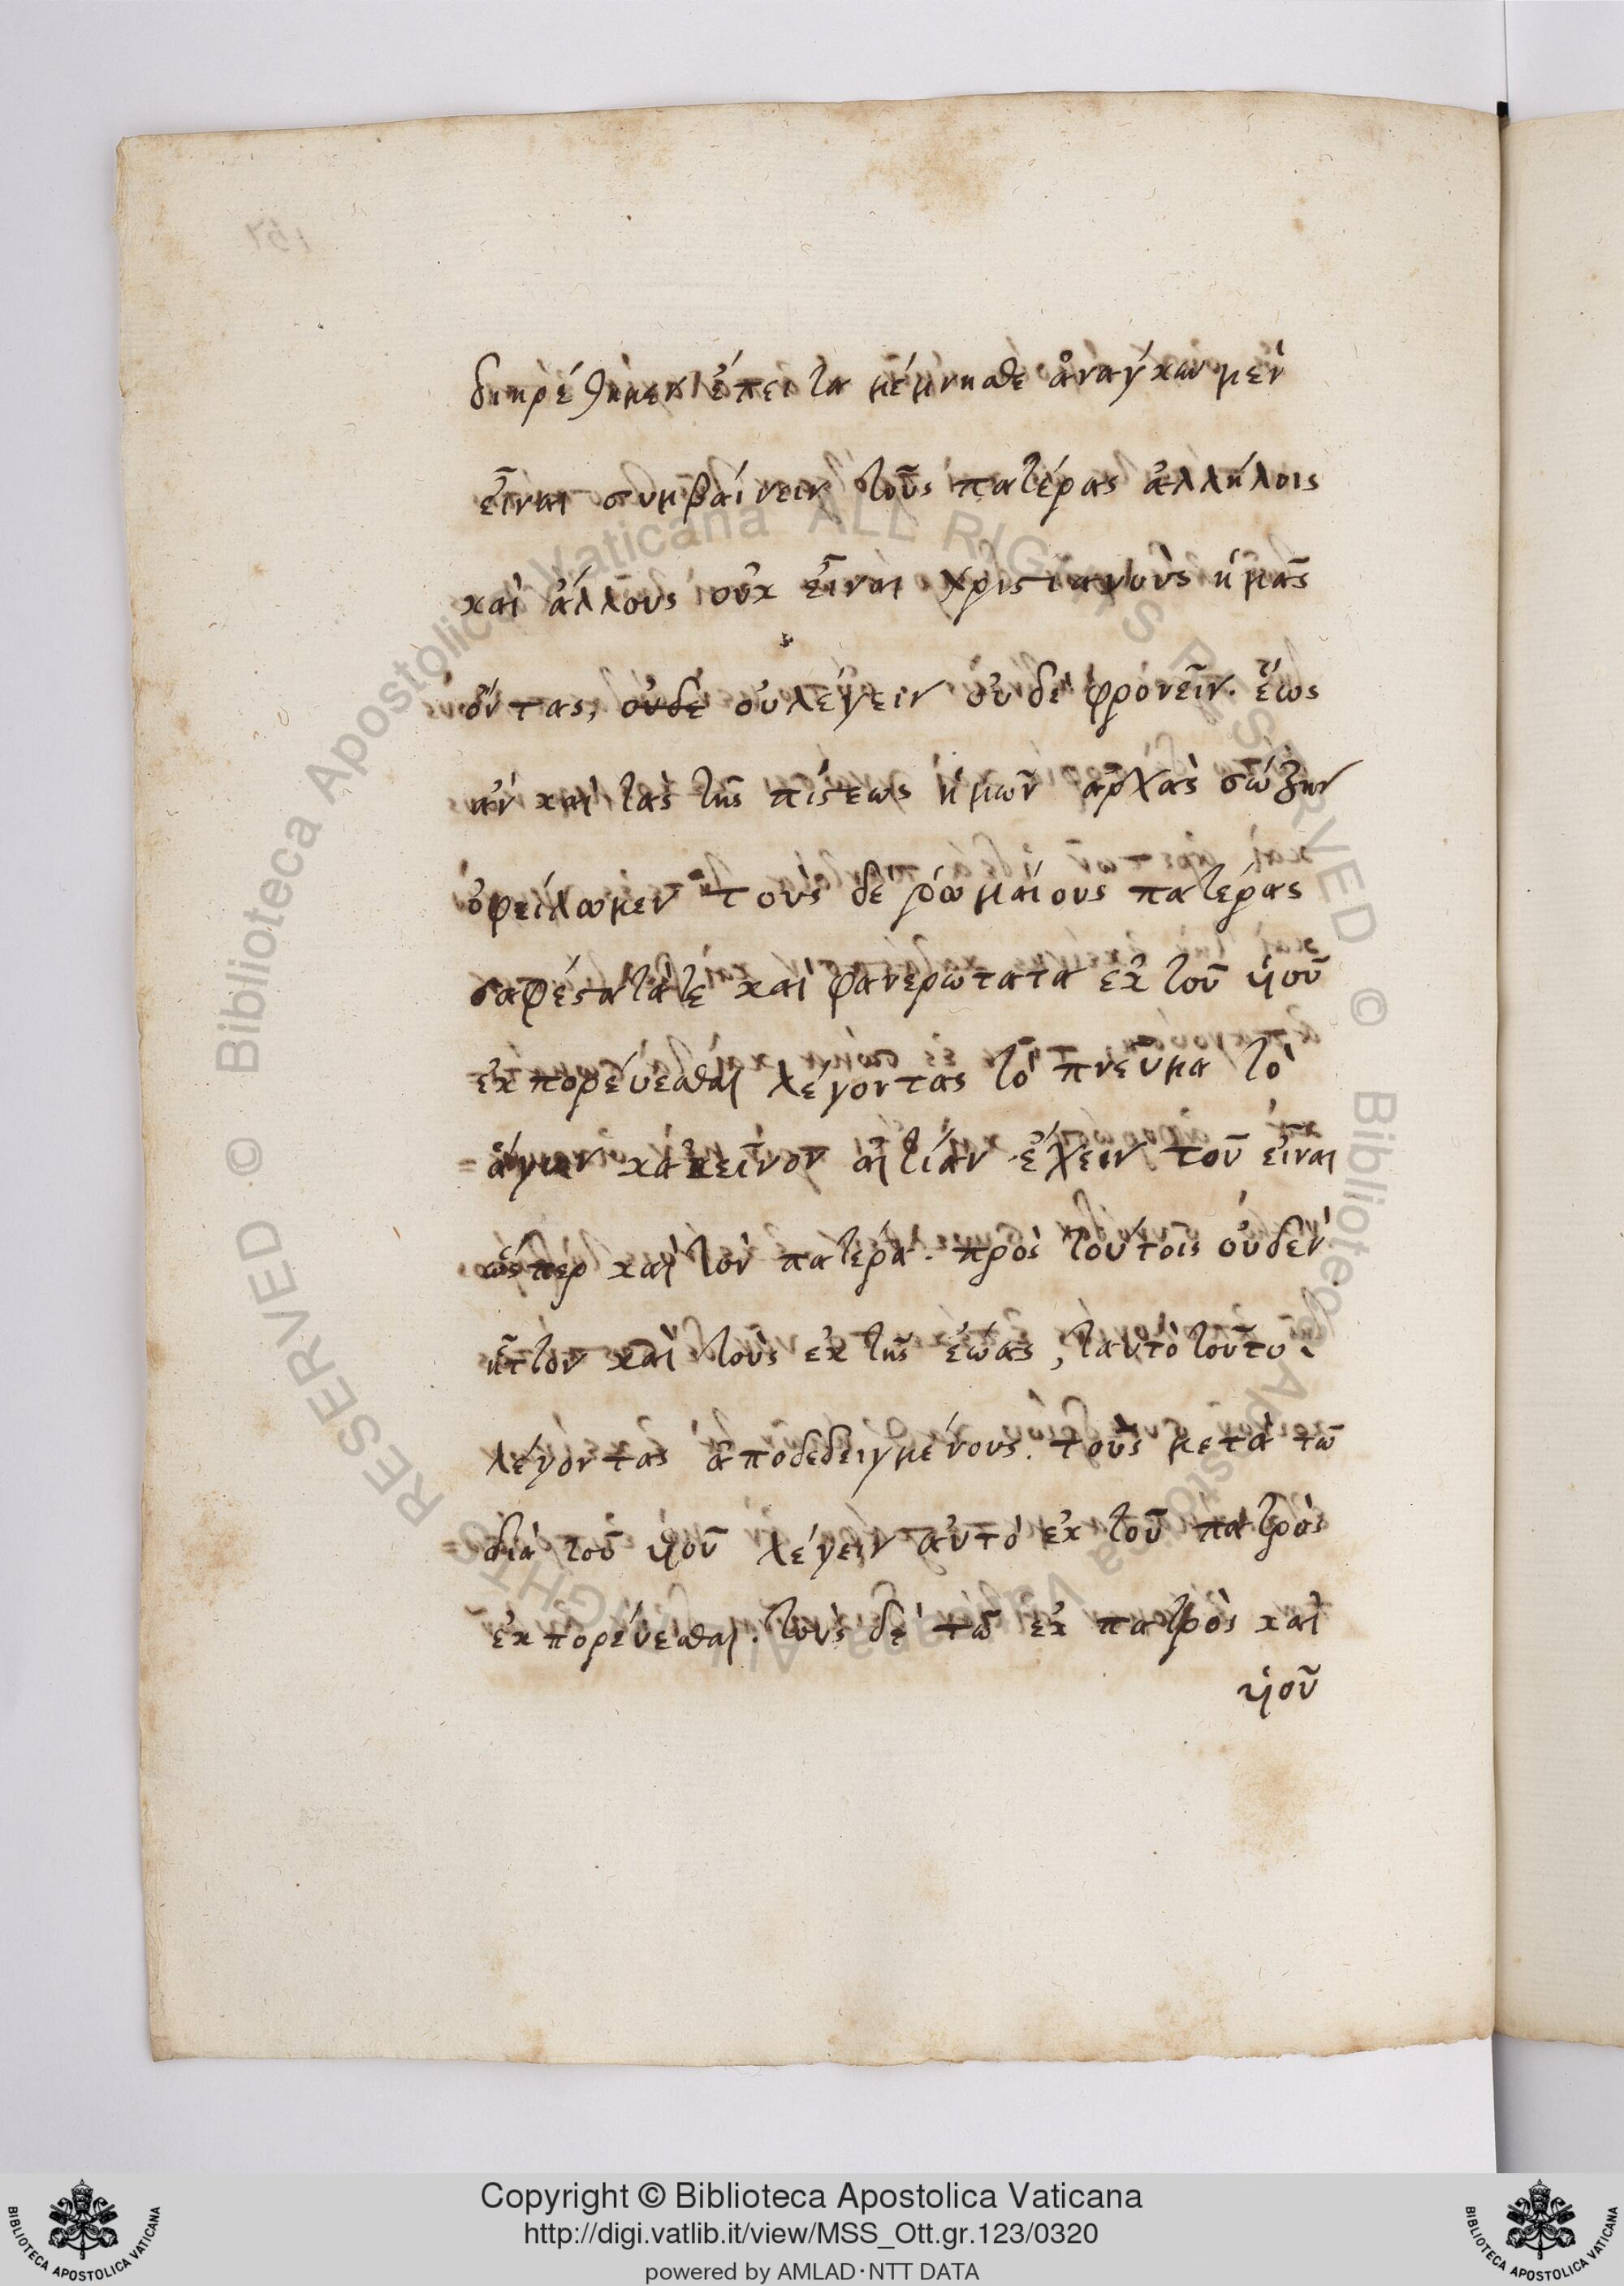 διῃρέθημεν ἔπειτα μέμνησθε ἀναγκαῖον μὲν
εἶναι συμβαίνειν τοῦς πατέρας ἀλλήλοις
καὶ ἄλλους οὐκ εἶναι χριστιανοὺς ἡμᾶς
ὄντας, οὐδὲ οὐ λέγειν οὐδὲ φρονεῖν. ἕως
ἂν καὶ τὰς τῆς πίστεως ἡμῶν ἀρχὰς σώζειν
ὀφείλωμεν τοὺς δὲ ῥωμαίους πατέρας
σαφέστατά τε καὶ φανερώτατα ἐκ τοῦ υἱοῦ
ἐκπορέυεσθαι λέγοντας τὸ πνεῦμα τὸ
ἅγιον κἀκεῖνον αἰτίαν ἔχειν τοῦ εἶναι
ὥσπερ καὶ τὸν πατέρα. πρὸς τούτοις οὐδὲν
ἧττον καὶ τοὺς ἐκ τῆς ἑώας, ταὐτὸ τοῦτο
λέγοντας ἀποδεδειγμένους. τοὺς μετὰ τῶ
διὰ τοῦ υἱοῦ λέγειν αὐτὸ ἐκ τοῦ πατρὸς
ἐκπορέυεσθαι. τοὺς δὲ τῶ ἐκ πατρὸς καὶ
υἱοῦ
© Biblioteca Apostolica Vaticana ALL RIGHTS RESERVED © Biblioteca Apostolica Vaticana ALL RIGHTS RESERVED
Copyright © Biblioteca Apostolica Vaticana
http://digi.vatlib.it/view/MSS_Ott.gr.123/0320
powered by AMLAD·NTT DATA
BIBLIOTECA APOSTOLICA VATICANA
BIBLIOTECA APOSTOLICA VATICANA